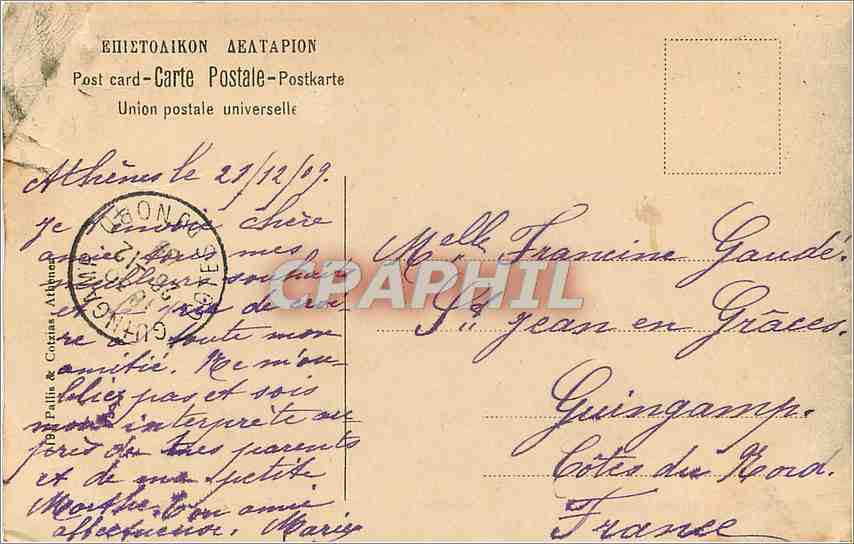 ΕΠΙΣΤΟΛΙΚΟΝ ΔΕΛΤΑΡΙΟΝ
Post card-Carte Postale-Postkarte
Union postale universelle
Athènes le 21/12/09.
je t'envoie chère
amie tous mes
meilleurs souhaits
et te prie de croi-
re à toute mon
amitié. Ne m'ou-
bliez pas et sois
mon interprète au
près de tes parents
et de ma petite
Marthe. Ton amie
affectueuse. Marie
Melle Francine Gaudé.
St jean en Grâces.
Guingamp.
Côtes du Nord.
France
GUINGAMP COTES DU NORD
Pallis & Cotzias, Athènes
CPAPHIL